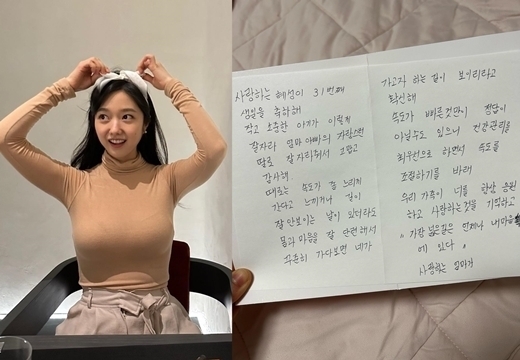 사랑하는 혜성이 31번째
생일을 축하해
작고 소중한 아가가 이렇게
잘자라 엄마 아빠의 자랑스런
딸로 잘 자라줘서 고맙고
감사해.
때로는 속도가 좀 느리게
간다고 느끼거나 길이
잘 안보이는 날이 있더라도
몸과 마음을 잘 단련해서
꾸준히 가다보면 네가
가고자 하는 길이 보이리라고
확신해
속도가 빠른것만이 정답이
아닐수도 있으니 건강관리를
최우선으로 하면서 속도를
조절하기를 바래
우리 가족이 너를 항상 응원
하고 사랑하는것을 기억하고
"가장 넓은길은 언제나 내마음속
에 있다"
사랑하는 엄마가